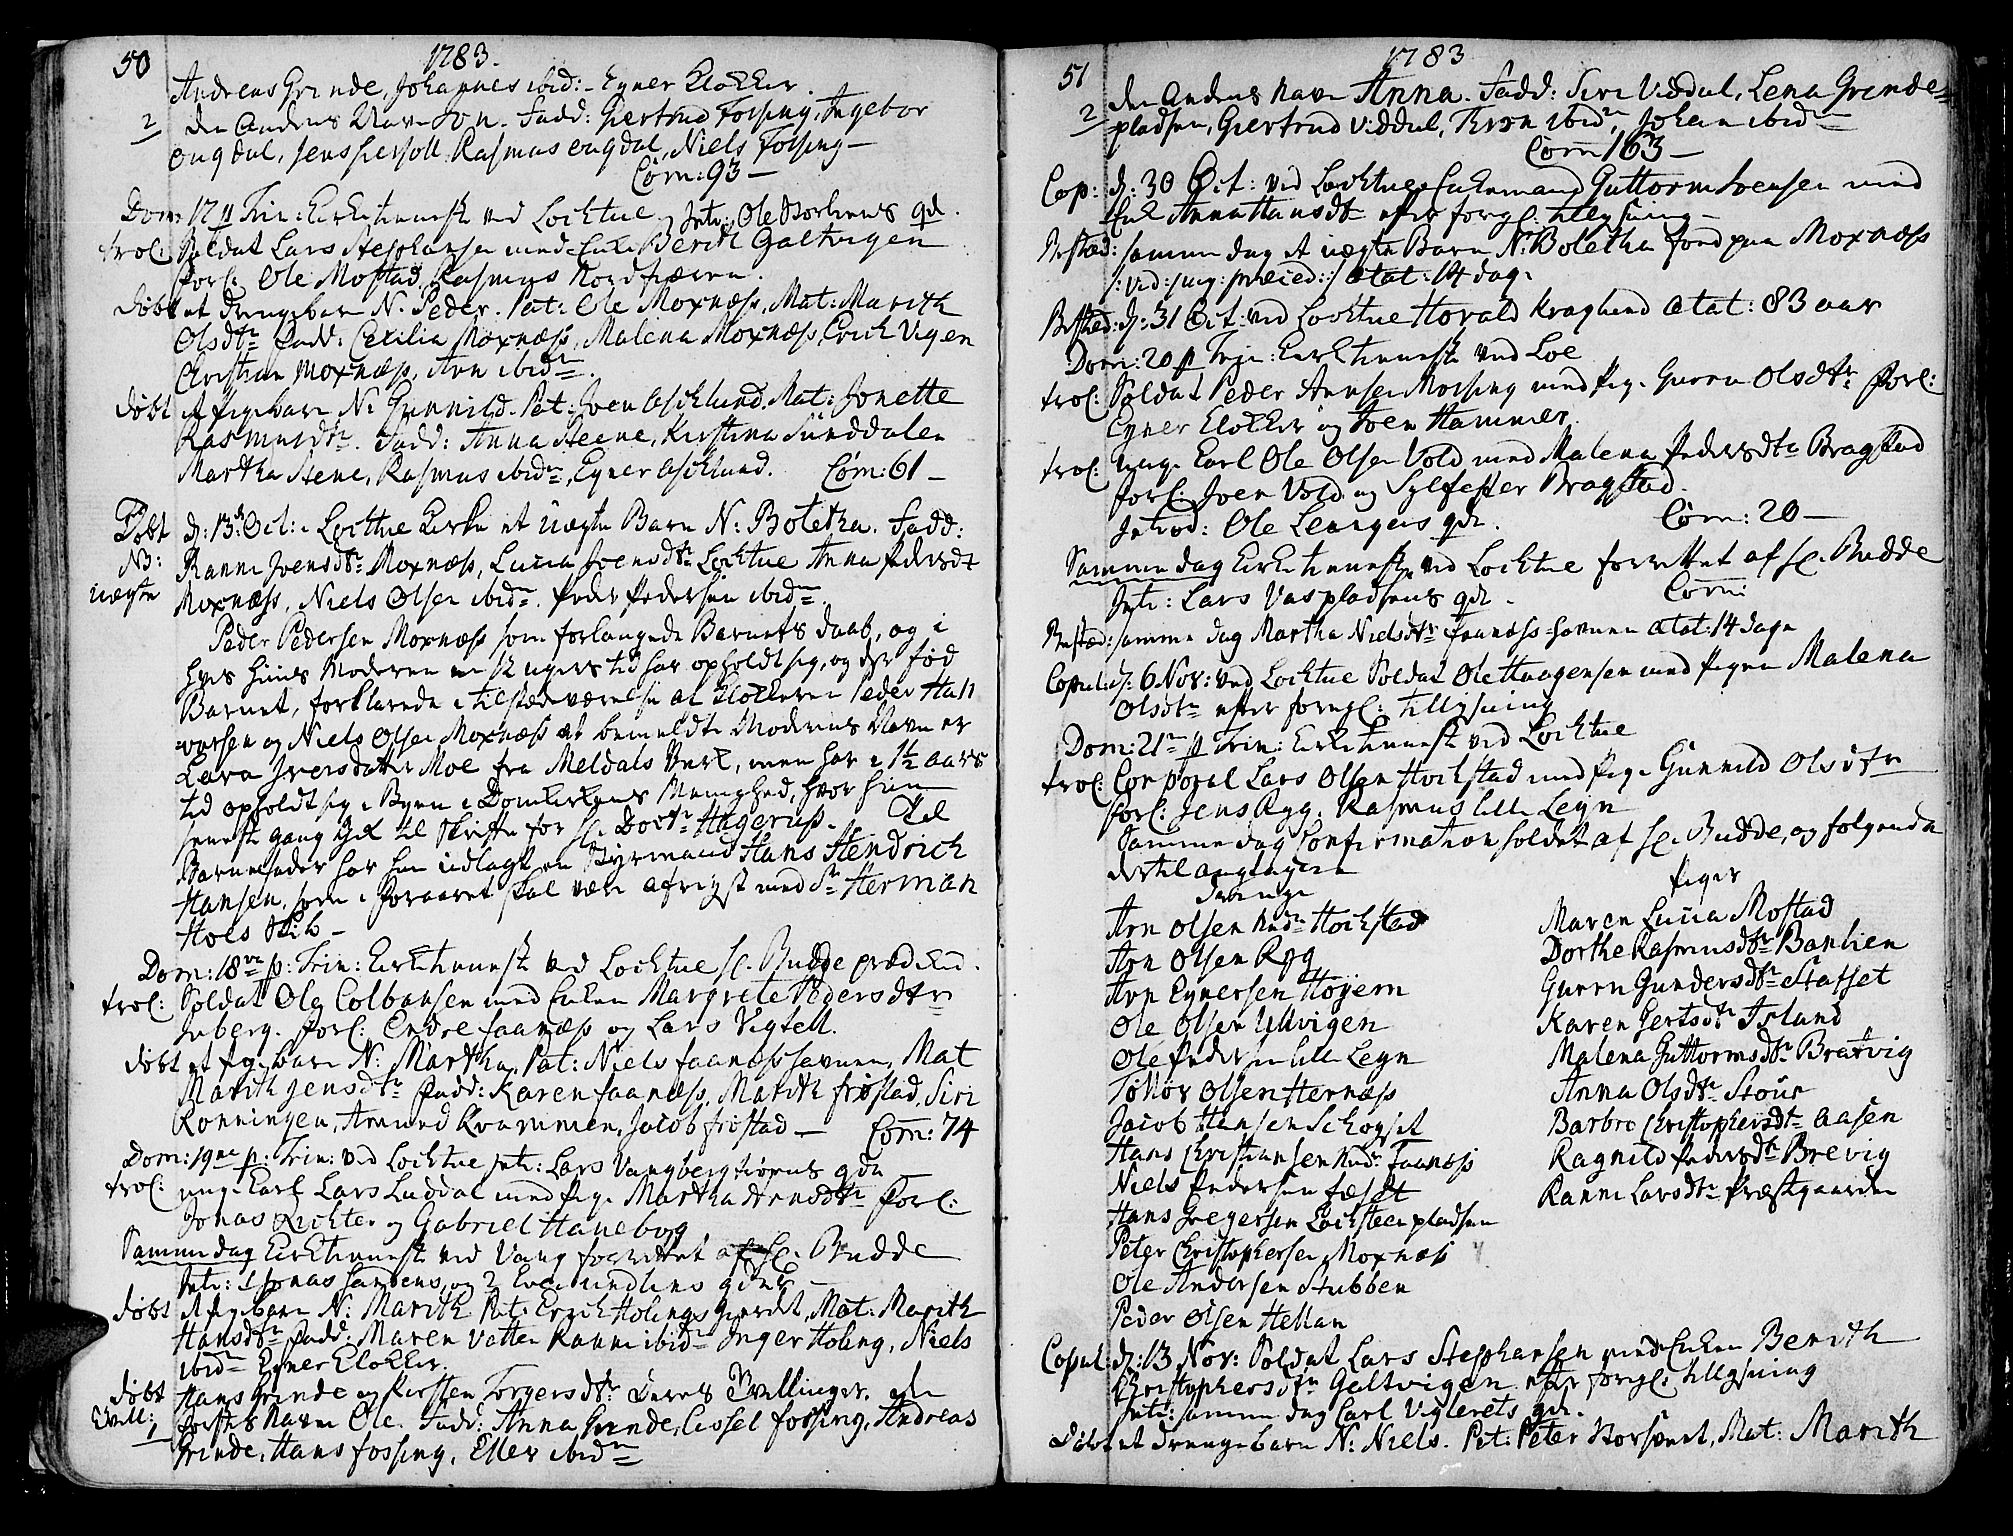 50 1783.
Andreas Grinde, Johannes ibid: Egner Klokker.
2 den Andens Navn Jon. Fadd: Giertrud Fossing, Ingebor
Ougdal, Jens Rasmus Ougdal, Niels Fossing —
Com: 93 —
Dom: 17 p Trin: Kirketieneste ved Lochtue. Intr: Ole Storliens qd.
trol: Soldat Lars Stephansen med Enke Berith Galtvigen
forl: Ole Mostad, Rasmus Nordfiæren.
døbt et drengebarn N. Peder. Pat: Ole Moxnæss, Mat: Marith
Olsdtr Fadd: Cecilia Moxnæss, Malena Moxnæss, Erich Vigen
Christian Moxnæss, Arn ibidm.
døbt et pigebarn N. Gunnild. Pat: Joen Aschlund. Mat: Jonette
Rasmusdtr. Fadd: Anna Steene, Kirstina Sünddalen
Martha Stene, Rasmus ibidm, Egner Aschlund. Com: 61 —
Døbt d: 13de Oct: i Lochtue Kirke et uægte Barn N: Boletha. Fadd:
NB: Ranni Joensdtr Moxnæss, Lucia Joensdtr Lochtue Anna Pedersdt
uægte Moxnæss, Niels Olsen ibidm. Peder Pedersen ibidm.
Peder Pedersen Moxnæss som forlangede Barnets daab, og i
hvis huus Moderen en 12 ugers tid har opholdt sig, og der fød
Barnet, forklarede i tilstædeværelse af Klokkeren Peder Hall
vorsen og Niels Olsen Moxnæss at bemeldte Moderens Navn er
Lava Iversdatter Moe fra Meldals Verk, men har i 1½ aars
tid opholdt sig i Byen i Domkirkens Menighed, hvor hun
seneste gang gik til Skrifte for Hr. Doctr Hagerup. Til
Barnefader har hun udlagt en Styrmand Hans Hendrich
Hansen, som i foraaret skal være afreyst med Sr Herman
Hoes Skib —
Dom: 18ve p: Trin: Kirketieneste ved Lochtue Hr. Budde præd
trol: Soldat Ole Colbansen med Enken Margrete Pedersdtr
Inberg. forl: Endre Faanæss og Lars Vigtell.
døbt et pigebarn N: Martha, Pat: Niels Faanæsshavnen, Mat
Marith Jensdtr Fadd: Karen Faanæss, Marith Frøstad, Siri
Rønningen, Amund Kvammen, Jacob Frøstad — Com: 74
Dom: 19ne p: Trin: ved Lochtue Intr: Lars Vangbergtiørns qda
trol: unge Karl Lars Luddal med Pige Martha Arnsdtr forl:
Jonas Richter og Gabriel Hanebog
Samme dag Kirketieneste ved Vang forrettet af Hr. Budde
Intr: Jonas Sandens, og 2
døbt et pigebarn N: Marith. Pat: Erich Holings Gierdet, Mat: Marith
Hansdtr Fadd: Maren Vatten Ranni ibidm Inger Holing, Niels
ibidm Egner Klokker.
døbt Hans Grinde og Kirsten Torgersdtr deres Tvillinger, den
Tvill: 1 førstes Navn Ole. Fadd: Anna Grinde, Cissel Fossing, Andreas
Grinde, Hans Fossing, Eller ibidm
51 1783
2 den Andens Navn Anna. Fadd: Siri Viddal, Lena Grinde-
pladsen, Giertrud Viddal, Thron ibidm, Johan ibidm
Com 163 —
Cop: d: 30 Oct: ved Lochtue Enkemand Guttorm Svensen med
Enke Anna Hansdtr efter forgl: tillysning —
Bested: samme dag et uægte Barn N: Boletha fød paa Moxnæss
/: vid: pag: præced: / ætat: 14 dage
Bested: d: 31 Oct: ved Lochtue Horald Kraglund ætat: 83 aar
Dom: 20 p Trin: Kirketieneste ved Loe
trol: Soldat Peder Arnsen Morsing med Pige Gurru Olsdtr forl:
Egner Klokker og Joen Hammer.
trol: unge Karl Ole Olsen Vold med Malena Pedersdtr Bragstad
forl: Joen Vold og Sylfester Bragstad.
Introd: Ole Leangers qde. Com: 20 —
Samme dag Kirketieneste ved Lochtue forrettet af Hr. Budde
Intr: Lars Vaspladsens qde. Com:
Bested: samme dag Martha Nielsdtr Faanæss-havnen ætat: 14 dage
Copul: d: 6 Nov: ved Lochtue Soldat Ole Haagensen med Pigen Malena
Olsdtr efter forgl: tillysning
Dom: 21de p Trin: Kirketieneste ved Lochtue
trol: Corporal Lars Olsen Hochstad med Pige Gunnild Olsdtr
forl: Jens Ryg. Rasmus lille Leyn
Samme dag Confirmation holdet af Hr. Budde, og følgende
dertil antagen
Drenge
Arn Olsen Hochstad
Arn Olsen Ryg
Arn Egnersen Høyem
Ole Olsen Ulvigen
Ole Pedersen lille Leyn
Tollov Olsen Hernæss
Jacob Hansen Schogset
Hans Christiansen Faanæss
Niels Pedersen Fæset
Hans Gregersen Lochsteenpladsen
Peter Christophersen Moxnæss
Ole Andersen Stubben
Peder Olsen Hellan
Piger
Maren Lucia Mostad
Dorthe Rasmusdtr Banlien
Gurru Gundersdtr Stafset
Karen Gertsdtr Island
Malena Guttormsdtr Bratvig
Anna Olsdtr Stour
Barbro Christophersdtr Aasen
Ragnild Pedersdtr Brevig
Ranni Larsdtr Præstgaarden
Copul: d: 13 Nov: Soldat Lars Stephansen med Enken Berith
Christophersdtr Galtvigen efter forgl: tillysning
Intr: samme dag Carl Viglerets qde.
Døbt et drengebarn N: Niels. Pat: Peter Storsvet, Mat: Marith